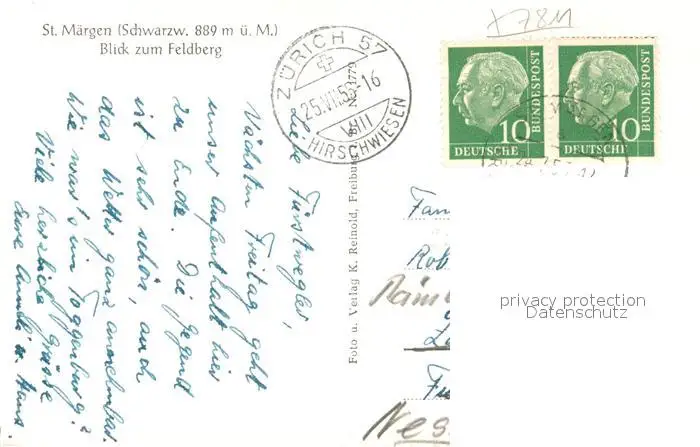 St. Märgen (Schwarzw. 889 m ü. M.)
Blick zum Feldberg
ZÜRICH 57
25.VII.5 -16
VIII
HIRSCHWIESEN
X 781
10
DEUTSCHE
BUNDESPOST
10
DEUTSCHE
BUNDESPOST
Foto u. Verlag K. Reinold, Freiburg Nr. 1779
Liebe
Nächsten Freitag geht
unser Aufenthalt hier
zu Ende. Die Gegend
ist sehr schön, auch
das Wetter ganz annehmbar.
Wie war's im Toggenburg?
Viele herzliche Grüsse
Eure u. Hans
Fam
Rob
privacy protection
Datenschutz